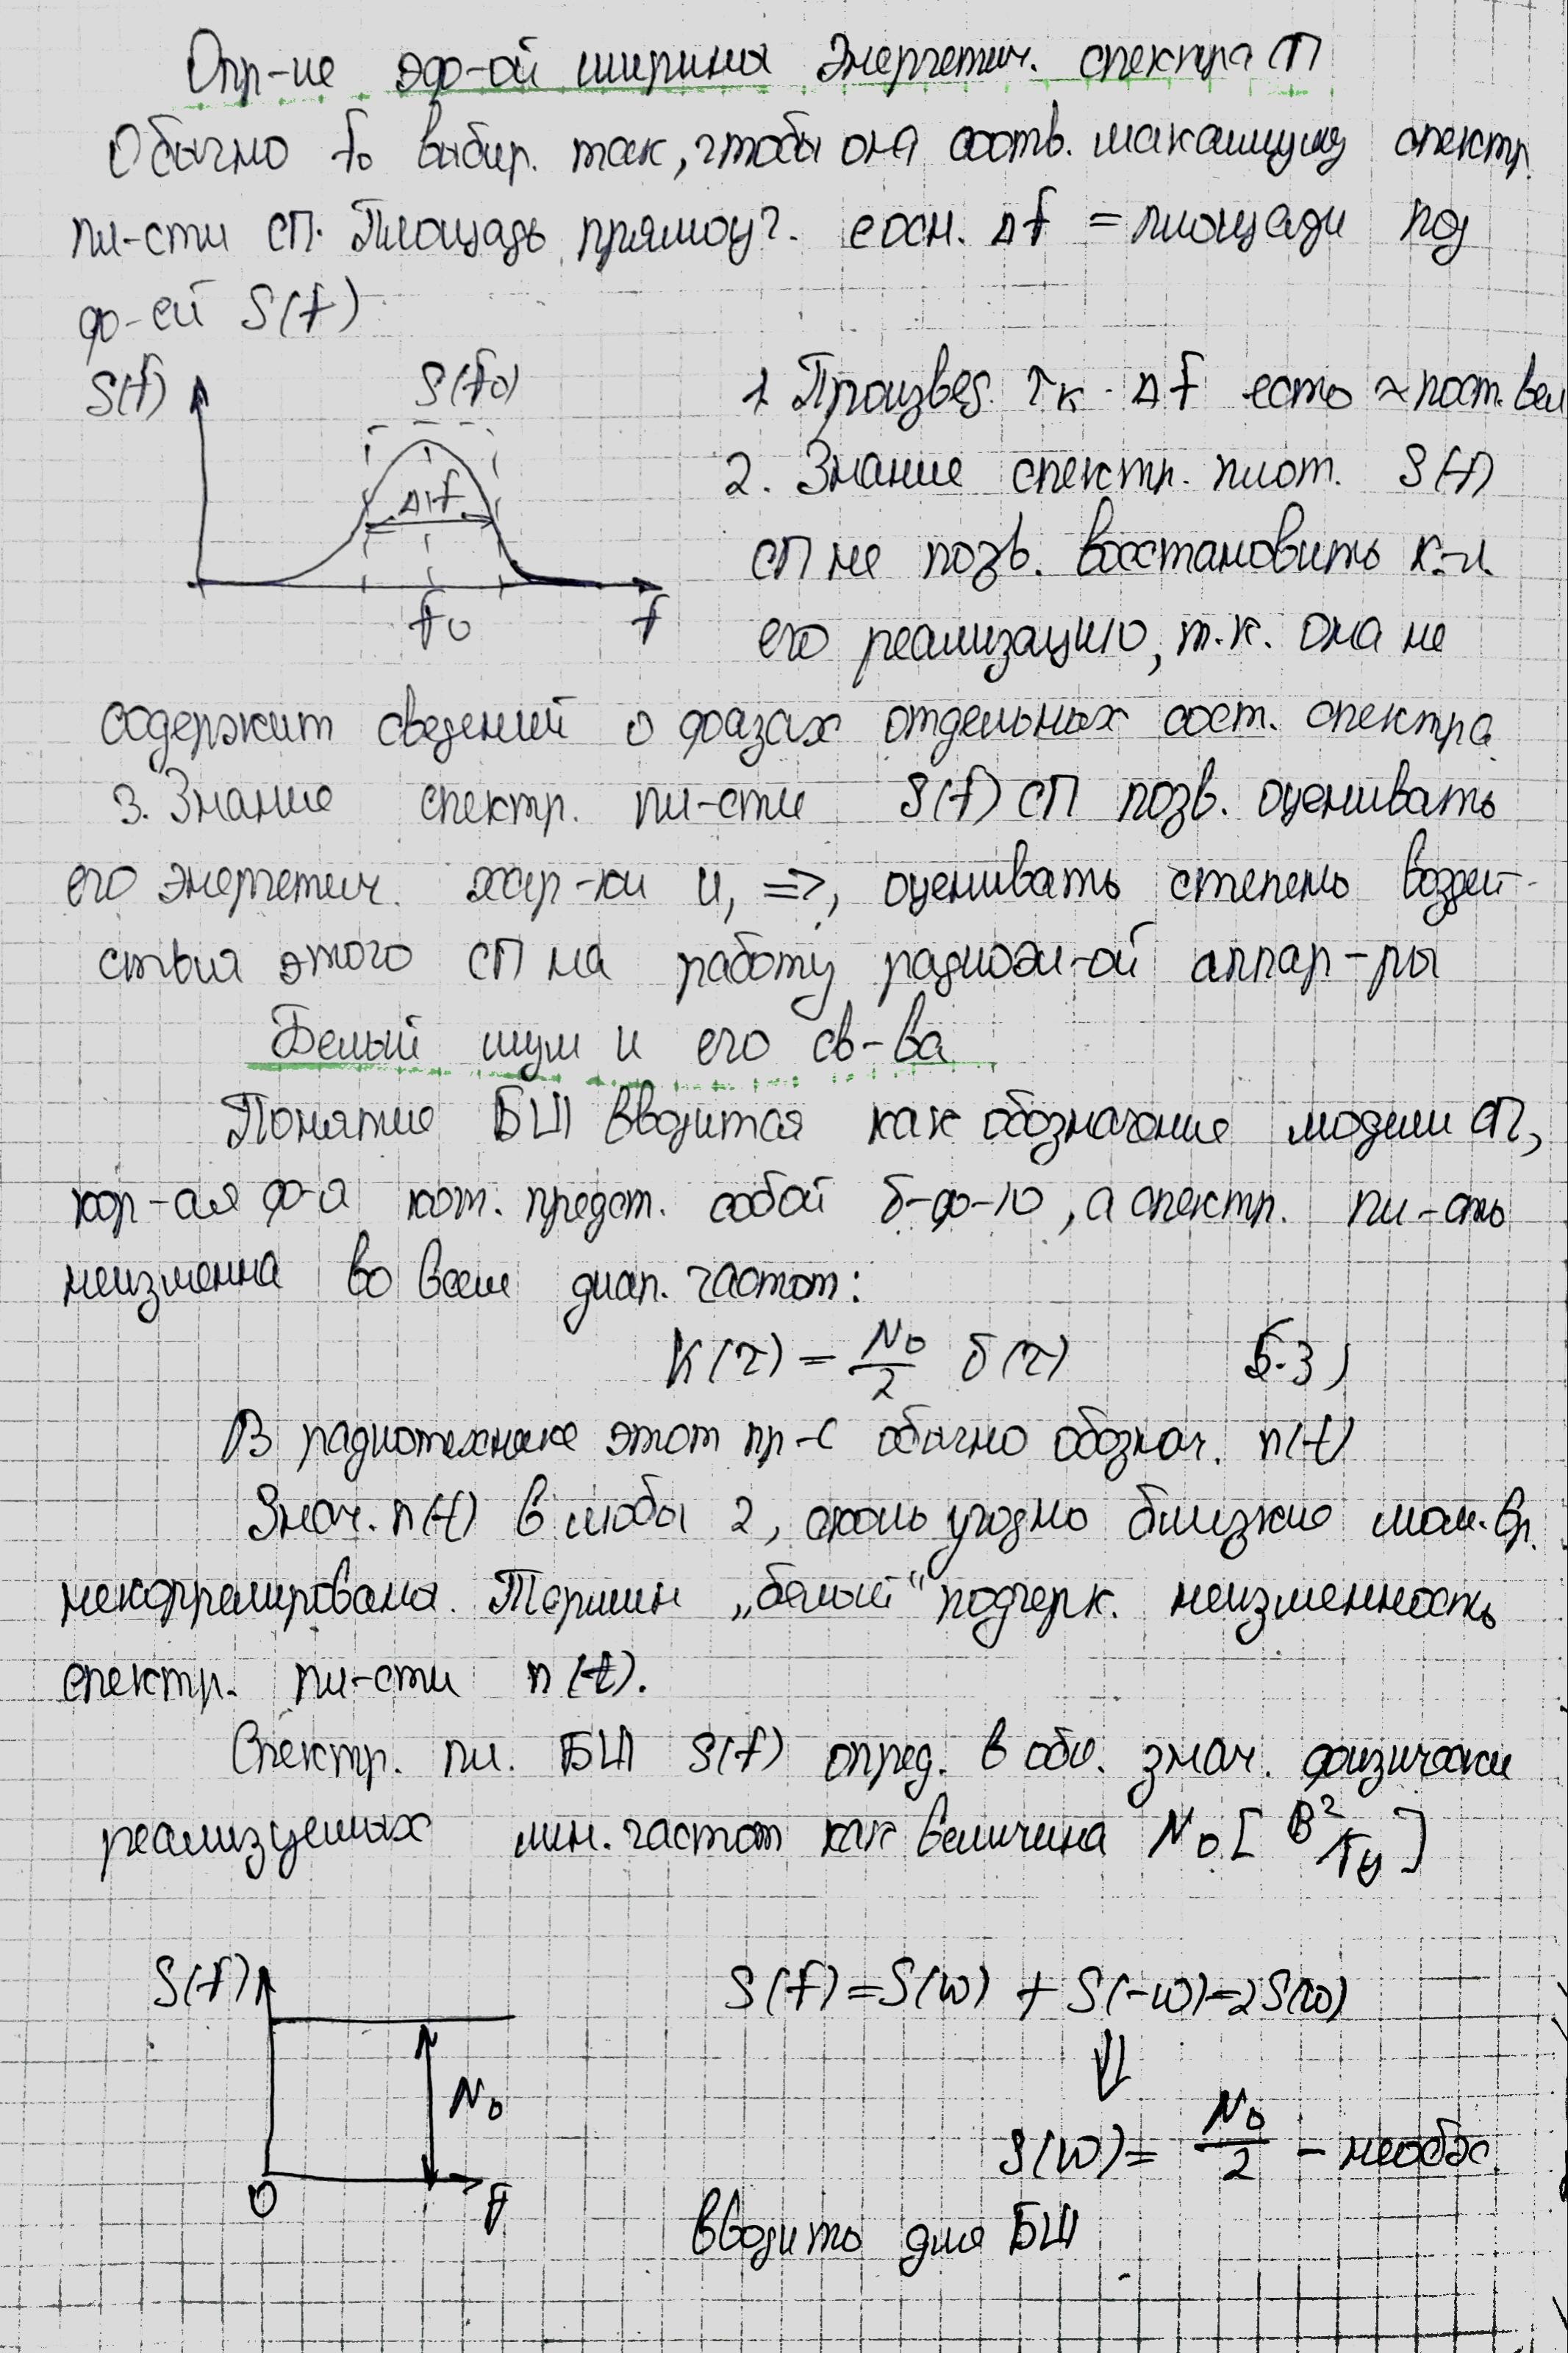 Опр-ие эф-ой ширины энергетич. спектра СП
Обычно f₀ выбир. так, чтобы она соотв. максимуму спектр.
пл-сти СП. Площадь прямоуг. с осн. Δf = площади под
ф-ей S(f)
S(f) S(f₀)
Δf
f₀ f
1. Произвед. τк · Δf есть ≈ пост. вел
2. Знание спектр. плот. S(f)
СП не позв. восстановить к-л.
его реализацию, т.к. она не
содержит сведений о фазах отдельных сост. спектра
3. Знание спектр. пл-сти S(f) СП позв. оценивать
его энергетич. хар-ки и, =>, оценивать степень воздей-
ствия этого СП на работу радиоэл-ой аппар-ры
Белый шум и его св-ва
Понятие БШ вводится как обозначение модели СП,
кор-ая ф-я кот. предст. собой δ-ф-ю, а спектр. пл-сть
неизменна во всем диап. частот:
K(τ) = N₀/2 δ(τ) (5.3)
В радиотехнике этот пр-с обычно обознач. n(t)
Знач. n(t) в любы 2, сколь угодно близкие мом. вр.
некоррелированы. Термин „белый“ подчерк. неизменность
спектр. пл-сти n(t).
Спектр. пл. БШ S(f) опред. в обл. знач. физически
реализуемых лин. частот как величина N₀ [В²/Гц]
S(f)
N₀
0 f
S(f) = S(ω) + S(-ω) = 2S(ω)
⇓
S(ω) = N₀/2 – необх.
вводить для БШ